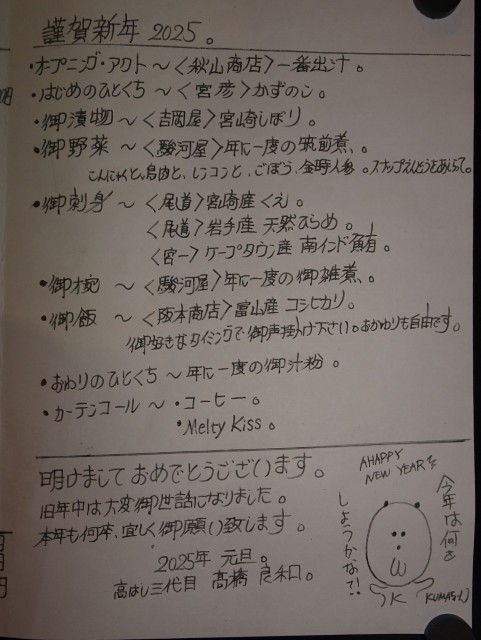 謹賀新年 2025。
・オープニング・アクト ～〈秋山商店〉一番出汁。
・はじめのひとくち ～〈宮彦〉かずのこ。
・御漬物 ～〈吉岡屋〉宮崎しぼり。
・御野菜 ～〈駿河屋〉年に一度の筑前煮。
こんにゃくと、鳥肉と、レンコンと、ごぼう、金時人参。スナップえんどうをあしらって。
・御刺身 ～〈尾道〉宮崎産 くえ。
〈尾道〉岩手産 天然ひらめ。
〈宮一〉ケープタウン産 南インド鮪。
・御椀 ～〈駿河屋〉年に一度の御雑煮。
・御飯 ～〈阪本商店〉富山産 コシヒカリ。
御好きなタイミングで御声掛け下さい。おかわりも自由です。
・おわりのひとくち ～ 年に一度の御汁粉。
・カーテンコール ～ ・コーヒー。
・Melty Kiss。
明けましておめでとうございます。
旧年中は大変御世話になりました。
本年も何卒、宜しく御願い致します。
2025年 元旦。
高はし三代目 髙橋 良和。
A HAPPY
NEW YEAR
今年は何を
しようかなで!